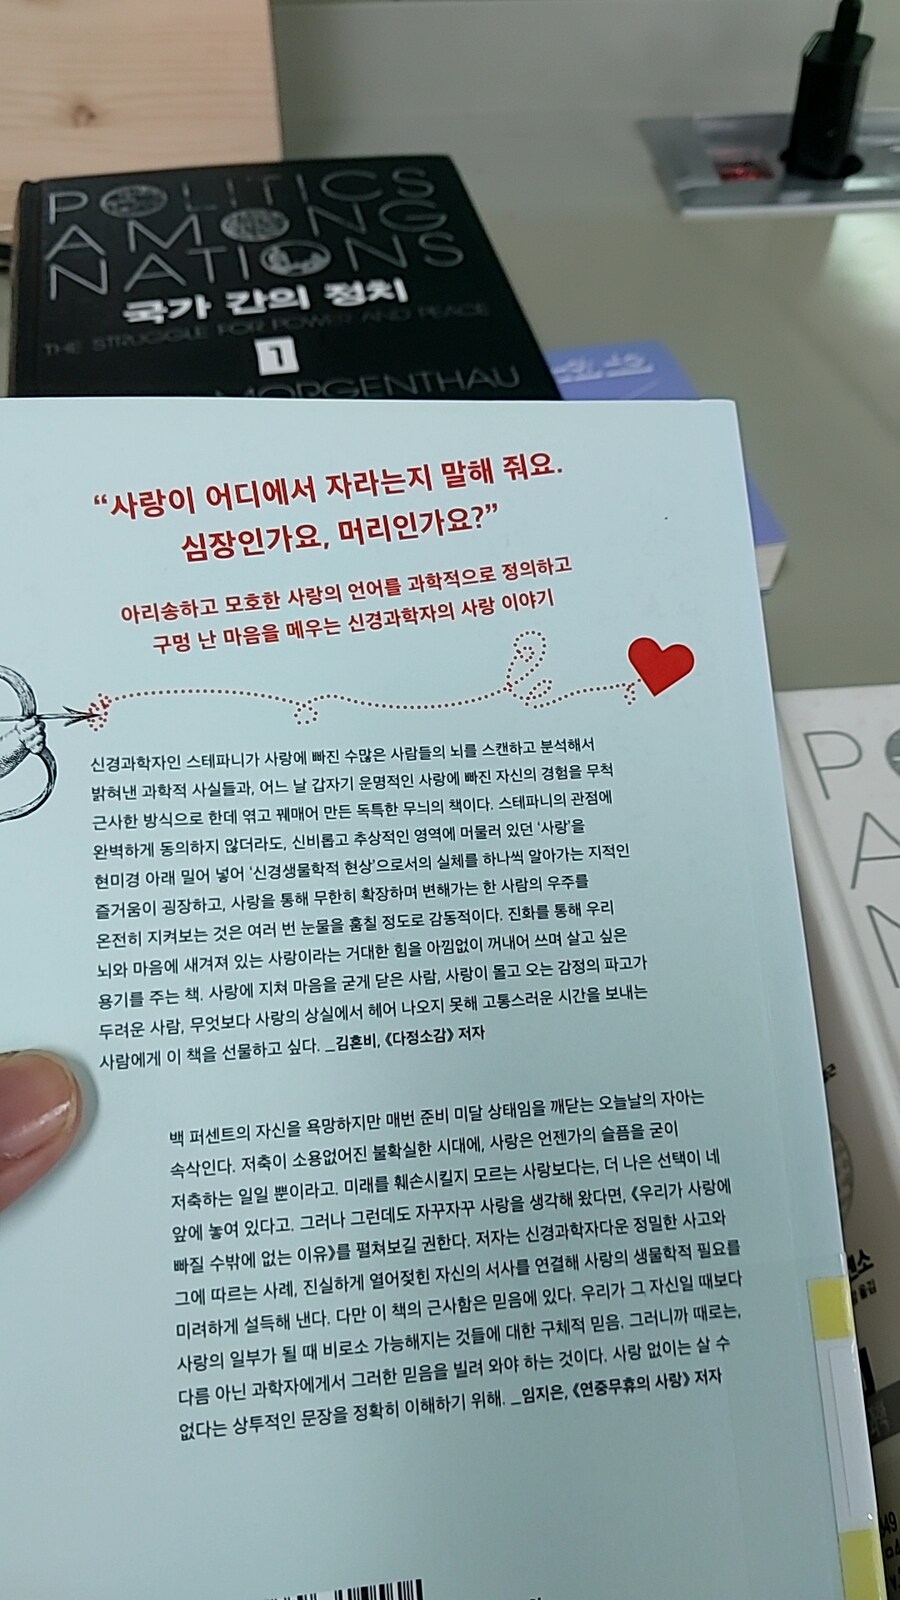 POLITICS
AMONG
NATIONS
국가 간의 정치
THE STRUGGLE FOR POWER AND PEACE
1
MORGENTHAU
“사랑이 어디에서 자라는지 말해 줘요.
심장인가요, 머리인가요?”
아리송하고 모호한 사랑의 언어를 과학적으로 정의하고
구멍 난 마음을 메우는 신경과학자의 사랑 이야기
신경과학자인 스테파니가 사랑에 빠진 수많은 사람들의 뇌를 스캔하고 분석해서
밝혀낸 과학적 사실들과, 어느 날 갑자기 운명적인 사랑에 빠진 자신의 경험을 무척
근사한 방식으로 한데 엮고 꿰매어 만든 독특한 무늬의 책이다. 스테파니의 관점에
완벽하게 동의하지 않더라도, 신비롭고 추상적인 영역에 머물러 있던 ‘사랑’을
현미경 아래 밀어 넣어 ‘신경생물학적 현상’으로서의 실체를 하나씩 알아가는 지적인
즐거움이 굉장하고, 사랑을 통해 무한히 확장하며 변해가는 한 사람의 우주를
온전히 지켜보는 것은 여러 번 눈물을 훔칠 정도로 감동적이다. 진화를 통해 우리
뇌와 마음에 새겨져 있는 사랑이라는 거대한 힘을 아낌없이 꺼내어 쓰며 살고 싶은
용기를 주는 책. 사랑에 지쳐 마음을 굳게 닫은 사람, 사랑이 몰고 오는 감정의 파고가
두려운 사람, 무엇보다 사랑의 상실에서 헤어 나오지 못해 고통스러운 시간을 보내는
사람에게 이 책을 선물하고 싶다. _김혼비, 《다정소감》 저자
백 퍼센트의 자신을 욕망하지만 매번 준비 미달 상태임을 깨닫는 오늘날의 자아는
속삭인다. 저축이 소용없어진 불확실한 시대에, 사랑은 언젠가의 슬픔을 굳이
저축하는 일일 뿐이라고. 미래를 훼손시킬지 모르는 사랑보다는, 더 나은 선택이 네
앞에 놓여 있다고. 그러나 그런데도 자꾸자꾸 사랑을 생각해 왔다면, 《우리가 사랑에
빠질 수밖에 없는 이유》를 펼쳐보길 권한다. 저자는 신경과학자다운 정밀한 사고와
그에 따르는 사례, 진실하게 열어젖힌 자신의 서사를 연결해 사랑의 생물학적 필요를
미려하게 설득해 낸다. 다만 이 책의 근사함은 믿음에 있다. 우리가 그 자신일 때보다
사랑의 일부가 될 때 비로소 가능해지는 것들에 대한 구체적 믿음. 그러니까 때로는,
다름 아닌 과학자에게서 그러한 믿음을 빌려 와야 하는 것이다. 사랑 없이는 살 수
없다는 상투적인 문장을 정확히 이해하기 위해. _임지은, 《연중무휴의 사랑》 저자
P
A
N